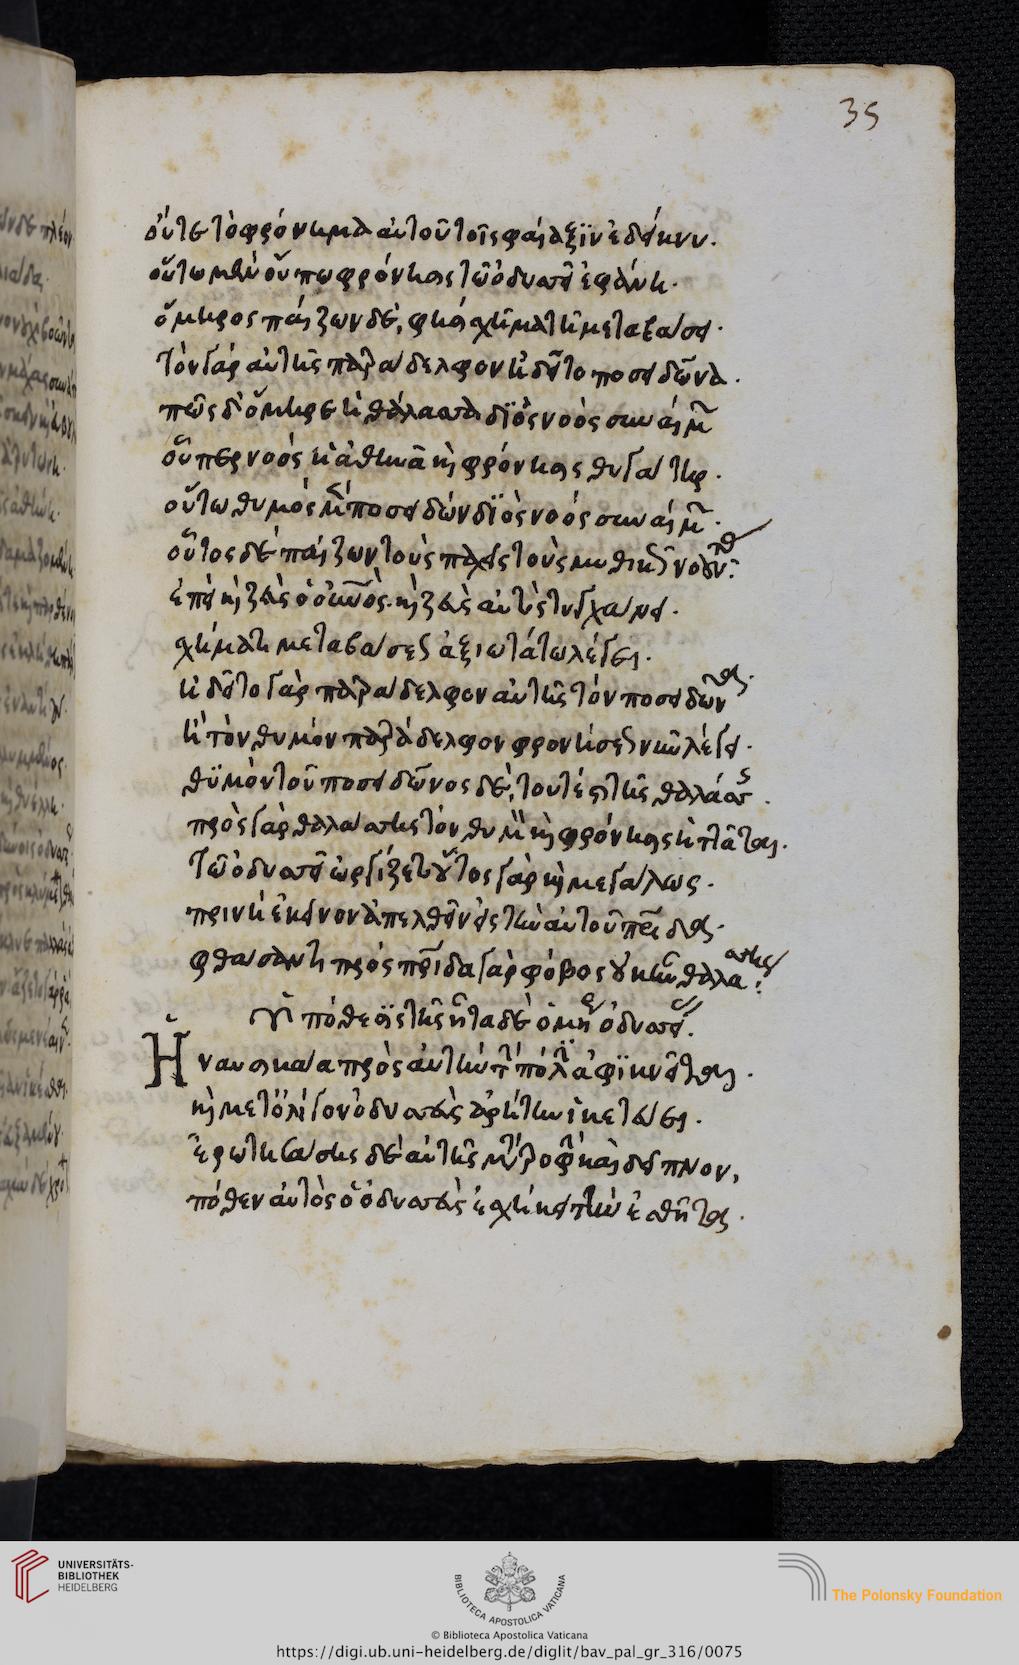 35
οὔτε τὸ φρόνημα αὐτοῦ τοῖς φαίαξϊν ἐδείκνυ.
οὕτω μὲν οὖν πω φρόνησις τῶ ὀδυσσεῖ ἐφάνη.
ὅμηρος παίζων δέ, φησὶ σχήματι μεταβάσει.
τὸν γὰρ αὐτῆς πατράδελφον ἠδεῖτο ποσειδῶνα.
πῶς δ' ὅμηρε ἡ θάλασσα δϊὸς νοὸς συναίμων
οὗπερ νοὸς ἡ ἀθηνᾶ καὶ φρόνησις θυγάτηρ.
οὕτω θυμός ποσειδῶν δϊὸς νοός συναίμων.
οὗτος δὲ παίζων τοὺς παχεῖς τοὺς
ἐπεὶ καὶ ζεὺς ὁ οὐρανός. καὶ ζεὺς αὐτὸς τυγχάνει.
σχήματι μεταβάσεως ἀξιωτάτω λέγει.
ἠδεῖτο γὰρ πατράδελφον αὐτῆς τὸν ποσειδῶνα
ἢ τὸν θυμόν πατράδελφον φρονήσεως νῦν λέγει.
θϋμὸν τοῦ ποσειδῶνος δέ, τουτέστι τῆς θαλάσσης.
πρὸς γὰρ θαλάσσης τὸν θυμὸν καὶ φρόνησις ἡττᾶται.
τῶ ὀδυσσεῖ ὠργίζετο οὗτος γὰρ καὶ μεγάλως.
πρὶν ἢ ἐκεῖνον ἀπελθεῖν εἰς τὴν αὐτοῦ πατρίδα.
φθάσαντι πρὸς πατρίδα γὰρ φόβος οὐκ ἦν θαλάσσης.
Ὑπόθεσις τῆς ἦτα δὲ ὁμήρου ὀδυσσείας.
Ἡ ναυσικάα πρὸς αὐτὴν τὴν πόλιν ἀφϊκνεῖται.
καὶ μετ' ὀλίγον ὀδυσσεὺς ἀρήτην ἱκετεύει.
ἐρωτησάσης δὲ αὐτῆς μετὰ τροφὴν καὶ δεῖπνον,
πόθεν αὐτὸς ὁ ὀδυσσεὺς ἐσχήκει τὴν ἐσθῆτα.
UNIVERSITÄTS-
BIBLIOTHEK
HEIDELBERG
BIBLIOTECA APOSTOLICA VATICANA
The Polonsky Foundation
© Biblioteca Apostolica Vaticana
https://digi.ub.uni-heidelberg.de/diglit/bav_pal_gr_316/0075